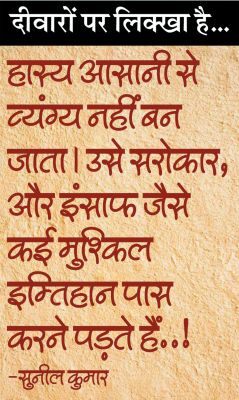 दीवारों पर लिक्खा है...
हास्य आसानी से
व्यंग्य नहीं बन
जाता। उसे सरोकार,
और इंसाफ जैसे
कई मुश्किल
इम्तिहान पास
करने पड़ते हैं..!
-सुनील कुमार